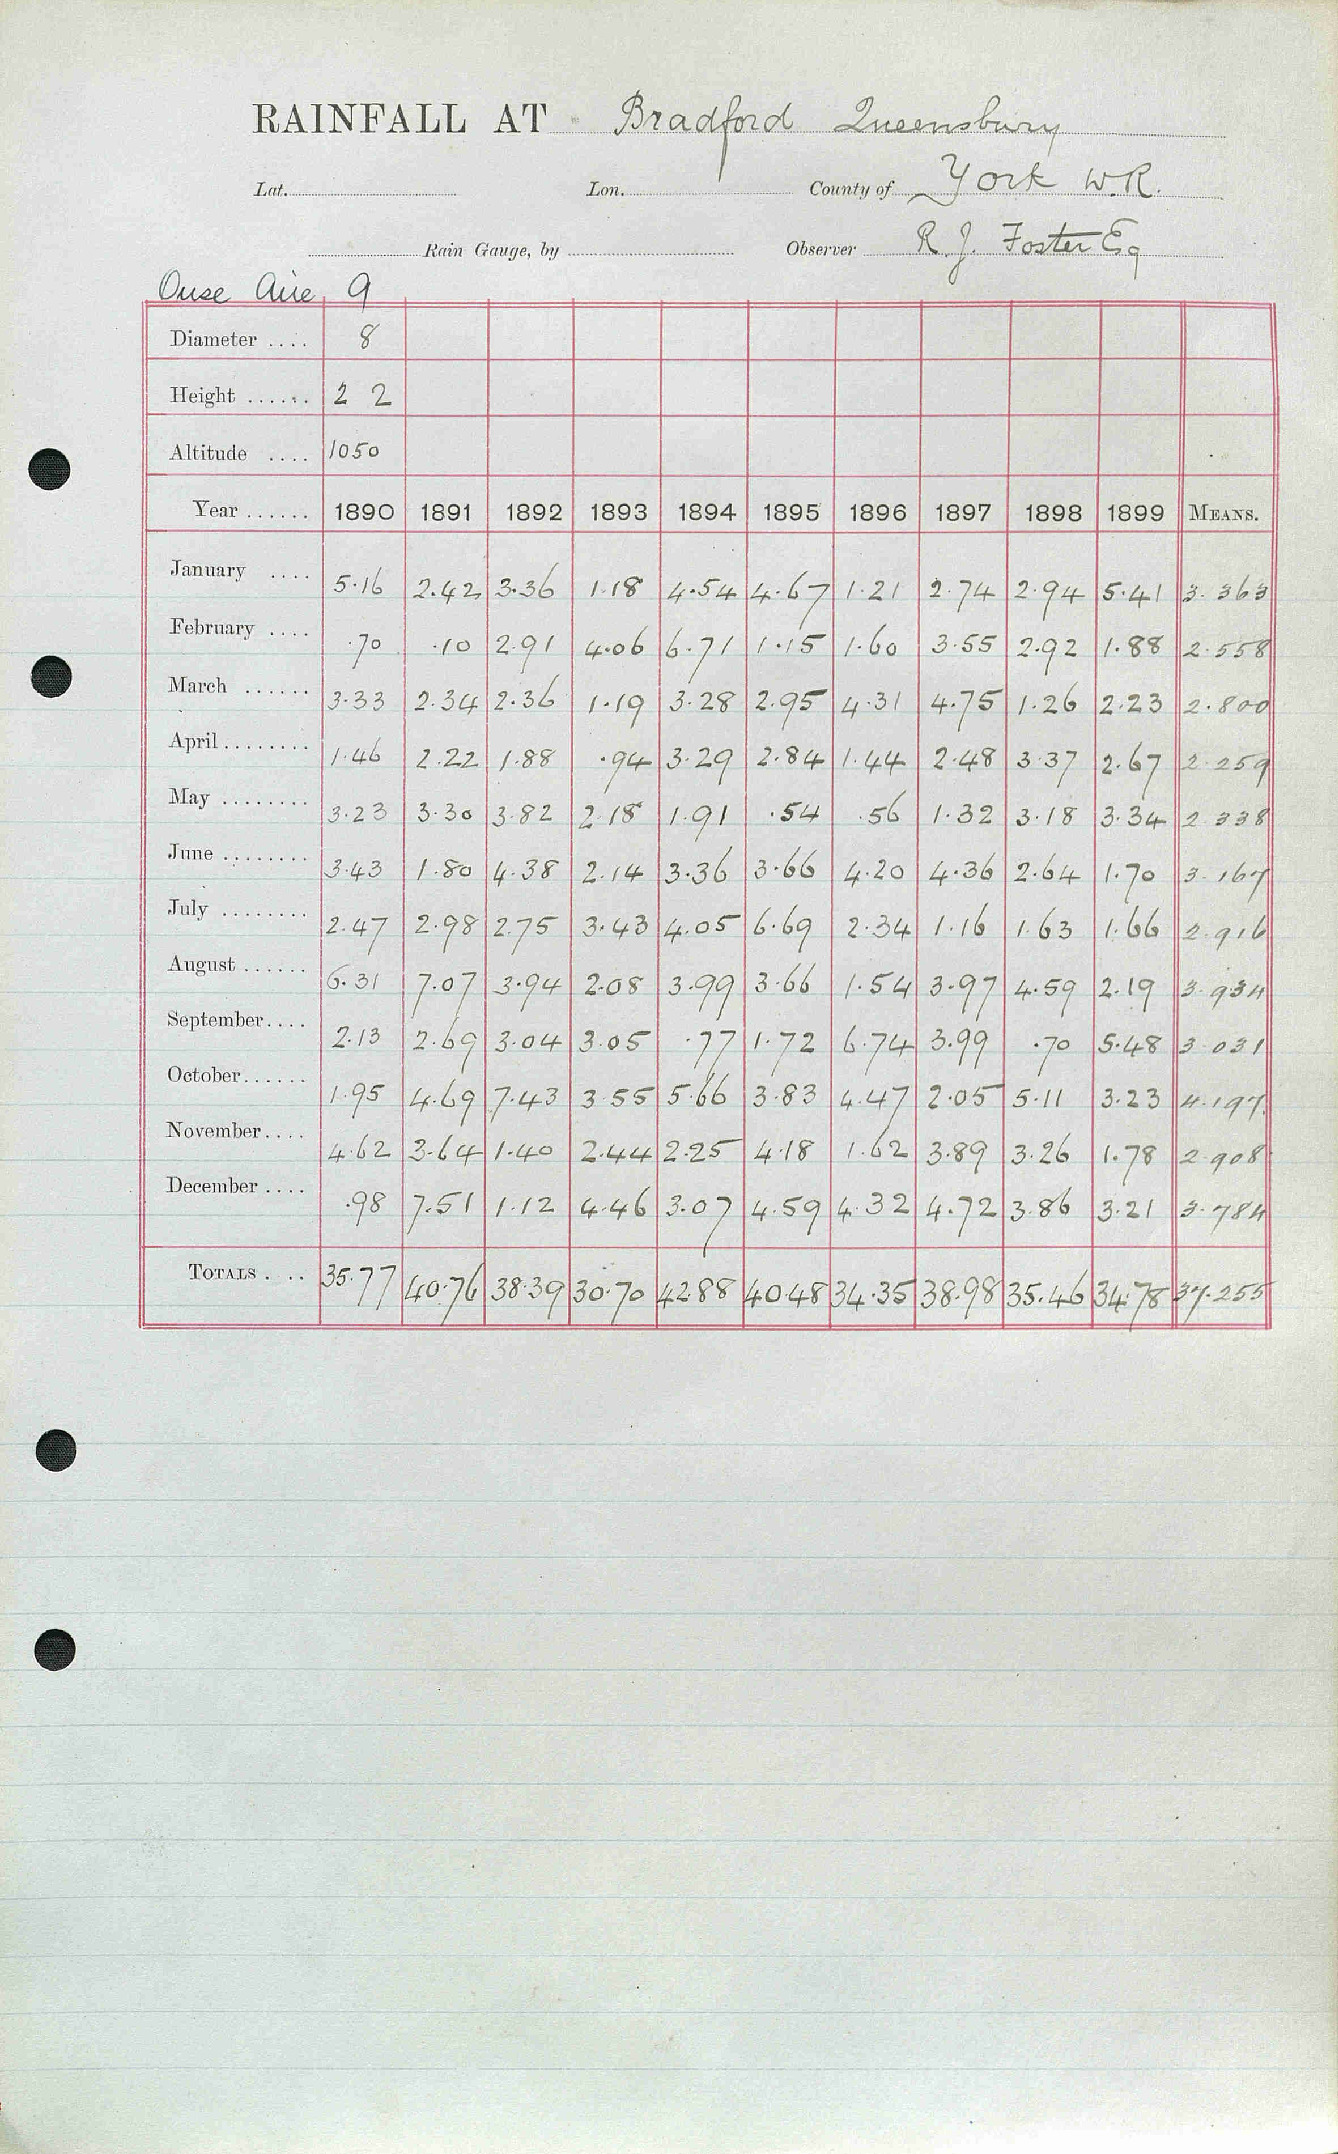 RAINFALL AT Bradford Queensbury
Lat. Lon. County of York W.R.
Rain Gauge, by Observer R. J. Foster Esq
Ouse Aire 9
Diameter .... 8
Height ...... 2 2
Altitude .... 1050
Year ...... 1890 1891 1892 1893 1894 1895 1896 1897 1898 1899 MEANS.
January .... 5.16 2.42 3.36 1.18 4.54 4.67 1.21 2.74 2.94 5.41 3.363
February .... .70 .10 2.91 4.06 6.71 1.15 1.60 3.55 2.92 1.88 2.558
March ...... 3.33 2.34 2.36 1.19 3.28 2.95 4.31 4.75 1.26 2.23 2.800
April ........ 1.46 2.22 1.88 .94 3.29 2.84 1.44 2.48 3.37 2.67 2.259
May ........ 3.23 3.30 3.82 2.18 1.91 .54 .56 1.32 3.18 3.34 2.338
June ........ 3.43 1.80 4.38 2.14 3.36 3.66 4.20 4.36 2.64 1.70 3.167
July ........ 2.47 2.98 2.75 3.43 4.05 6.69 2.34 1.16 1.63 1.66 2.916
August ...... 6.31 7.07 3.94 2.08 3.99 3.66 1.54 3.97 4.59 2.19 3.934
September .... 2.13 2.69 3.04 3.05 .77 1.72 6.74 3.99 .70 5.48 3.031
October ...... 1.95 4.69 7.43 3.55 5.66 3.83 4.47 2.05 5.11 3.23 4.197
November .... 4.62 3.64 1.40 2.44 2.25 4.18 1.62 3.89 3.26 1.78 2.908
December .... .98 7.51 1.12 4.46 3.07 4.59 4.32 4.72 3.86 3.21 3.784
TOTALS . .. 35.77 40.76 38.39 30.70 42.88 40.48 34.35 38.98 35.46 34.78 37.255